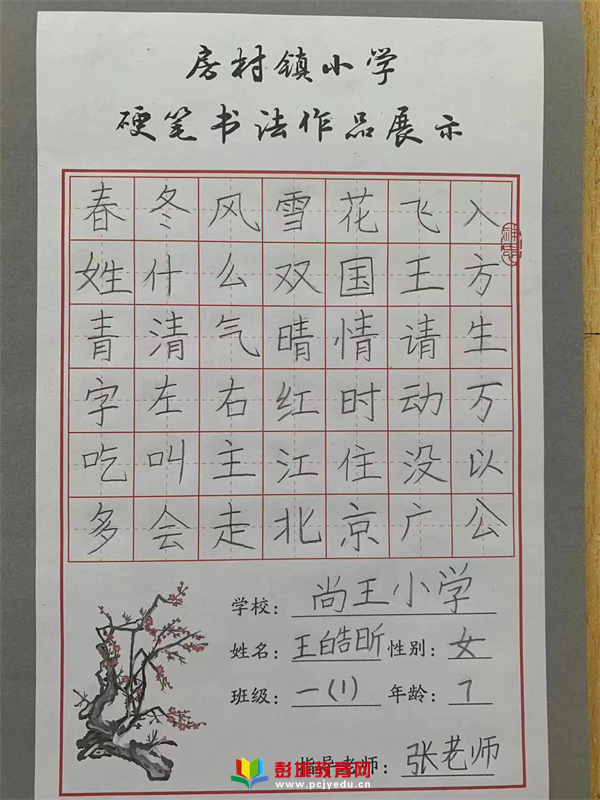 房村镇小学
硬笔书法作品展示
春冬风雪花飞入
姓什么双国王方
青清气晴情请生
字左右红时动万
吃叫主江住没以
多会走北京广公
学校：尚王小学
姓名：王皓昕 性别：女
班级：一(1) 年龄：7
指导老师：张老师
彭雄教育网
www.pcjyedu.com